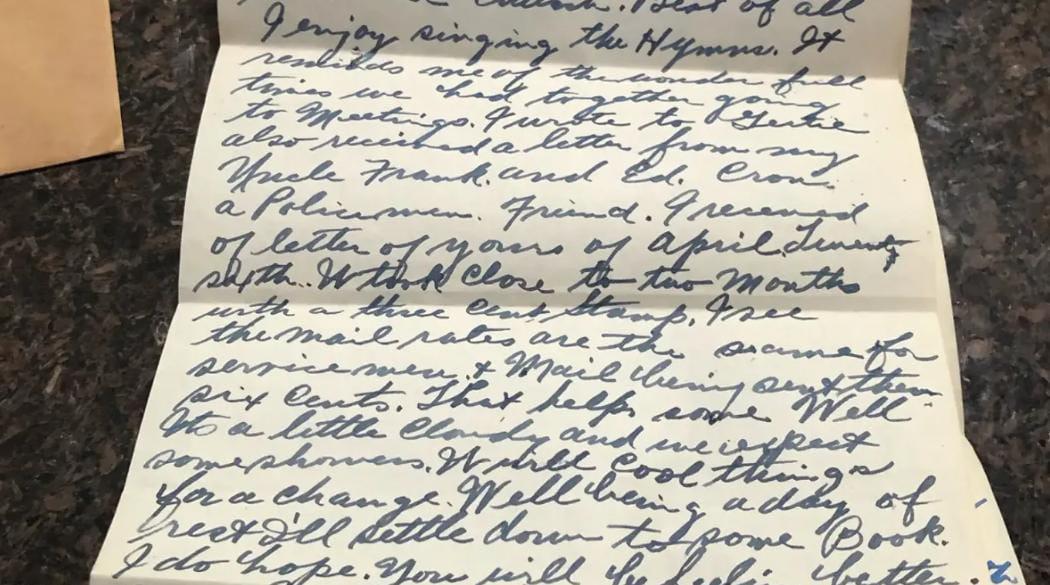 Best of all
I enjoy singing the Hymns. It
reminds me of the wonder full
times we had together going
to Meetings. I wrote to Gertie
also received a letter from my
Uncle Frank. and Ed. Cron.
a Policemen. Friend. I received
of letter of yours of April Twenty
sixth. It took Close to two Months
with a three Cent Stamp. I see
the mail rates are the same for
service men & Mail being sent them
six Cents. That helps some Well
Its a little Cloudy and we expect
some showers. It will Cool things
for a change. Well being a day of
rest I'll settle down to some Book.
I do hope. You will be feelin better